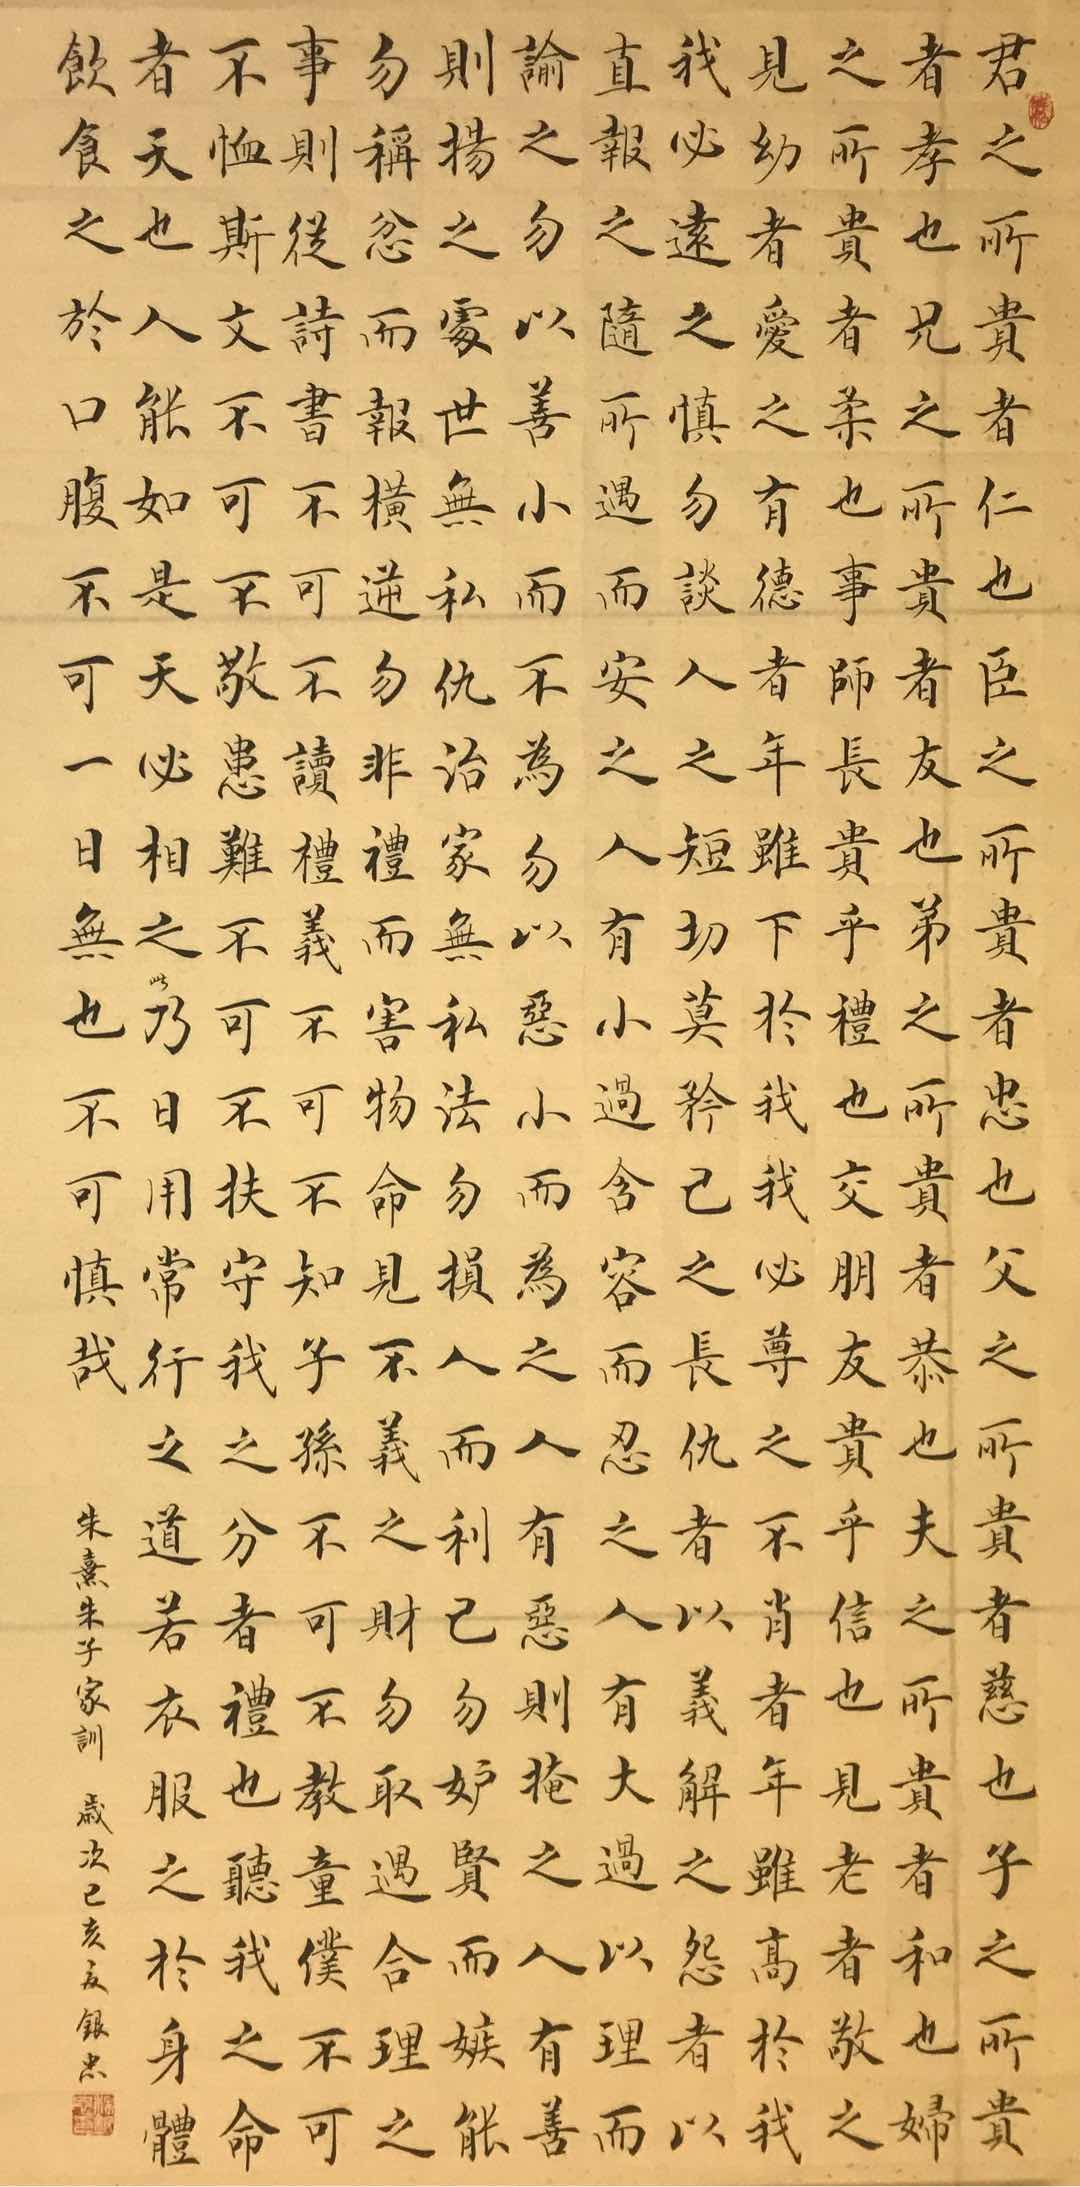 君之所貴者仁也臣之所貴者忠也父之所貴者慈也子之所貴
者孝也兄之所貴者友也弟之所貴者恭也夫之所貴者和也婦
之所貴者柔也事師長貴乎禮也交朋友貴乎信也見老者敬之
見幼者愛之有德者年雖下於我我必尊之不肖者年雖高於我
我必遠之慎勿談人之短切莫矜己之長仇者以義解之怨者以
直報之隨所遇而安之人有小過含容而忍之人有大過以理而
諭之勿以善小而不為勿以惡小而為之人有惡則掩之人有善
則揚之處世無私仇治家無私法勿損人而利己勿妒賢而嫉能
勿稱忿而報橫逆勿非禮而害物命見不義之財勿取遇合理之
事則從詩書不可不讀禮義不可不知子孫不可不教童僕不可
不恤斯文不可不敬患難不可不扶守我之分者禮也聽我之命
者天也人能如是天必相之此乃日用常行之道若衣服之於身體
飲食之於口腹不可一日無也不可慎哉
朱熹朱子家訓 歲次己亥夏銀忠